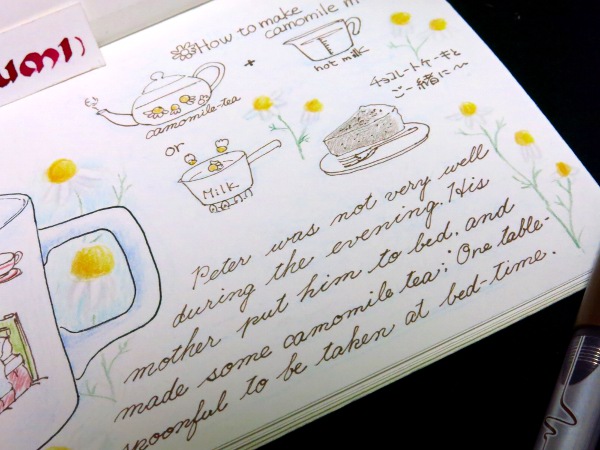 How to make
camomile m
+
hot milk
camomile-tea
or
Milk
チョコレートケーキと
ご一緒に〜
Peter was not very well
during the evening. His
mother put him to bed, and
made some camomile tea; "One table-
spoonful to be taken at bed-time.
umi)